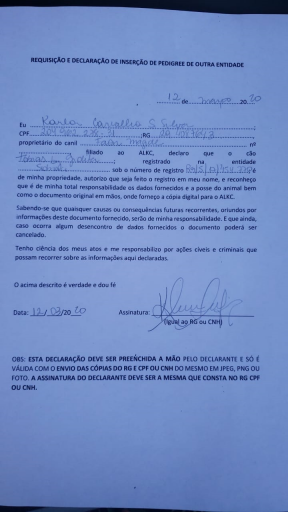 REQUISIÇÃO E DECLARAÇÃO DE INSERÇÃO DE PEDIGREE DE OUTRA ENTIDADE
12 de março 20 20
Eu Karla Carvalho S. Silva
CPF RG
proprietário do canil nº
filiado ao ALKC, declaro que o cão
registrado na entidade
sob o número de registro é
de minha propriedade, autorizo que seja feito o registro em meu nome, e reconheço
que é de minha total responsabilidade os dados fornecidos e a posse do animal bem
como o documento original em mãos, onde forneço a cópia digital para o ALKC.
Sabendo-se que quaisquer causas ou consequências futuras recorrentes, oriundos por
informações deste documento fornecido, serão de minha responsabilidade. E que ainda,
caso ocorra algum desencontro de dados fornecidos o documento poderá ser
cancelado.
Tenho ciência dos meus atos e me responsabilizo por ações cíveis e criminais que
possam recorrer sobre as informações aqui declaradas.
O acima descrito é verdade e dou fé
Data: 12/03/20 20 Assinatura:
(Igual ao RG ou CNH)
OBS: ESTA DECLARAÇÃO DEVE SER PREENCHIDA A MÃO PELO DECLARANTE E SÓ É
VÁLIDA COM O ENVIO DAS CÓPIAS DO RG E CPF OU CNH DO MESMO EM JPEG, PNG OU
FOTO. A ASSINATURA DO DECLARANTE DEVE SER A MESMA QUE CONSTA NO RG CPF
OU CNH.